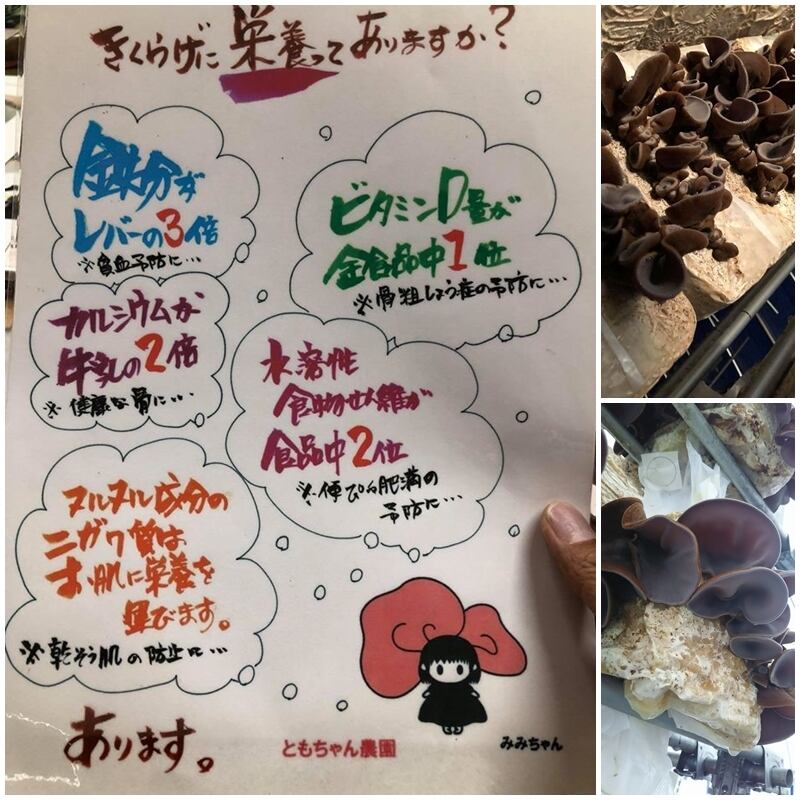 きくらげに栄養ってありますか?
鉄分が
レバーの3倍
※貧血予防に…
ビタミンD量が
全食品中1位
※骨粗しょう症の予防に…
カルシウムが
牛乳の2倍
※健康な骨に…
水溶性
食物せん維が
食品中2位
※便ぴや肥満の
予防に…
ヌルヌル成分の
ニガワ質は
お肌に栄養を
運びます。
※乾そう肌の防止に…
あります。
ともちゃん農園
みみちゃん